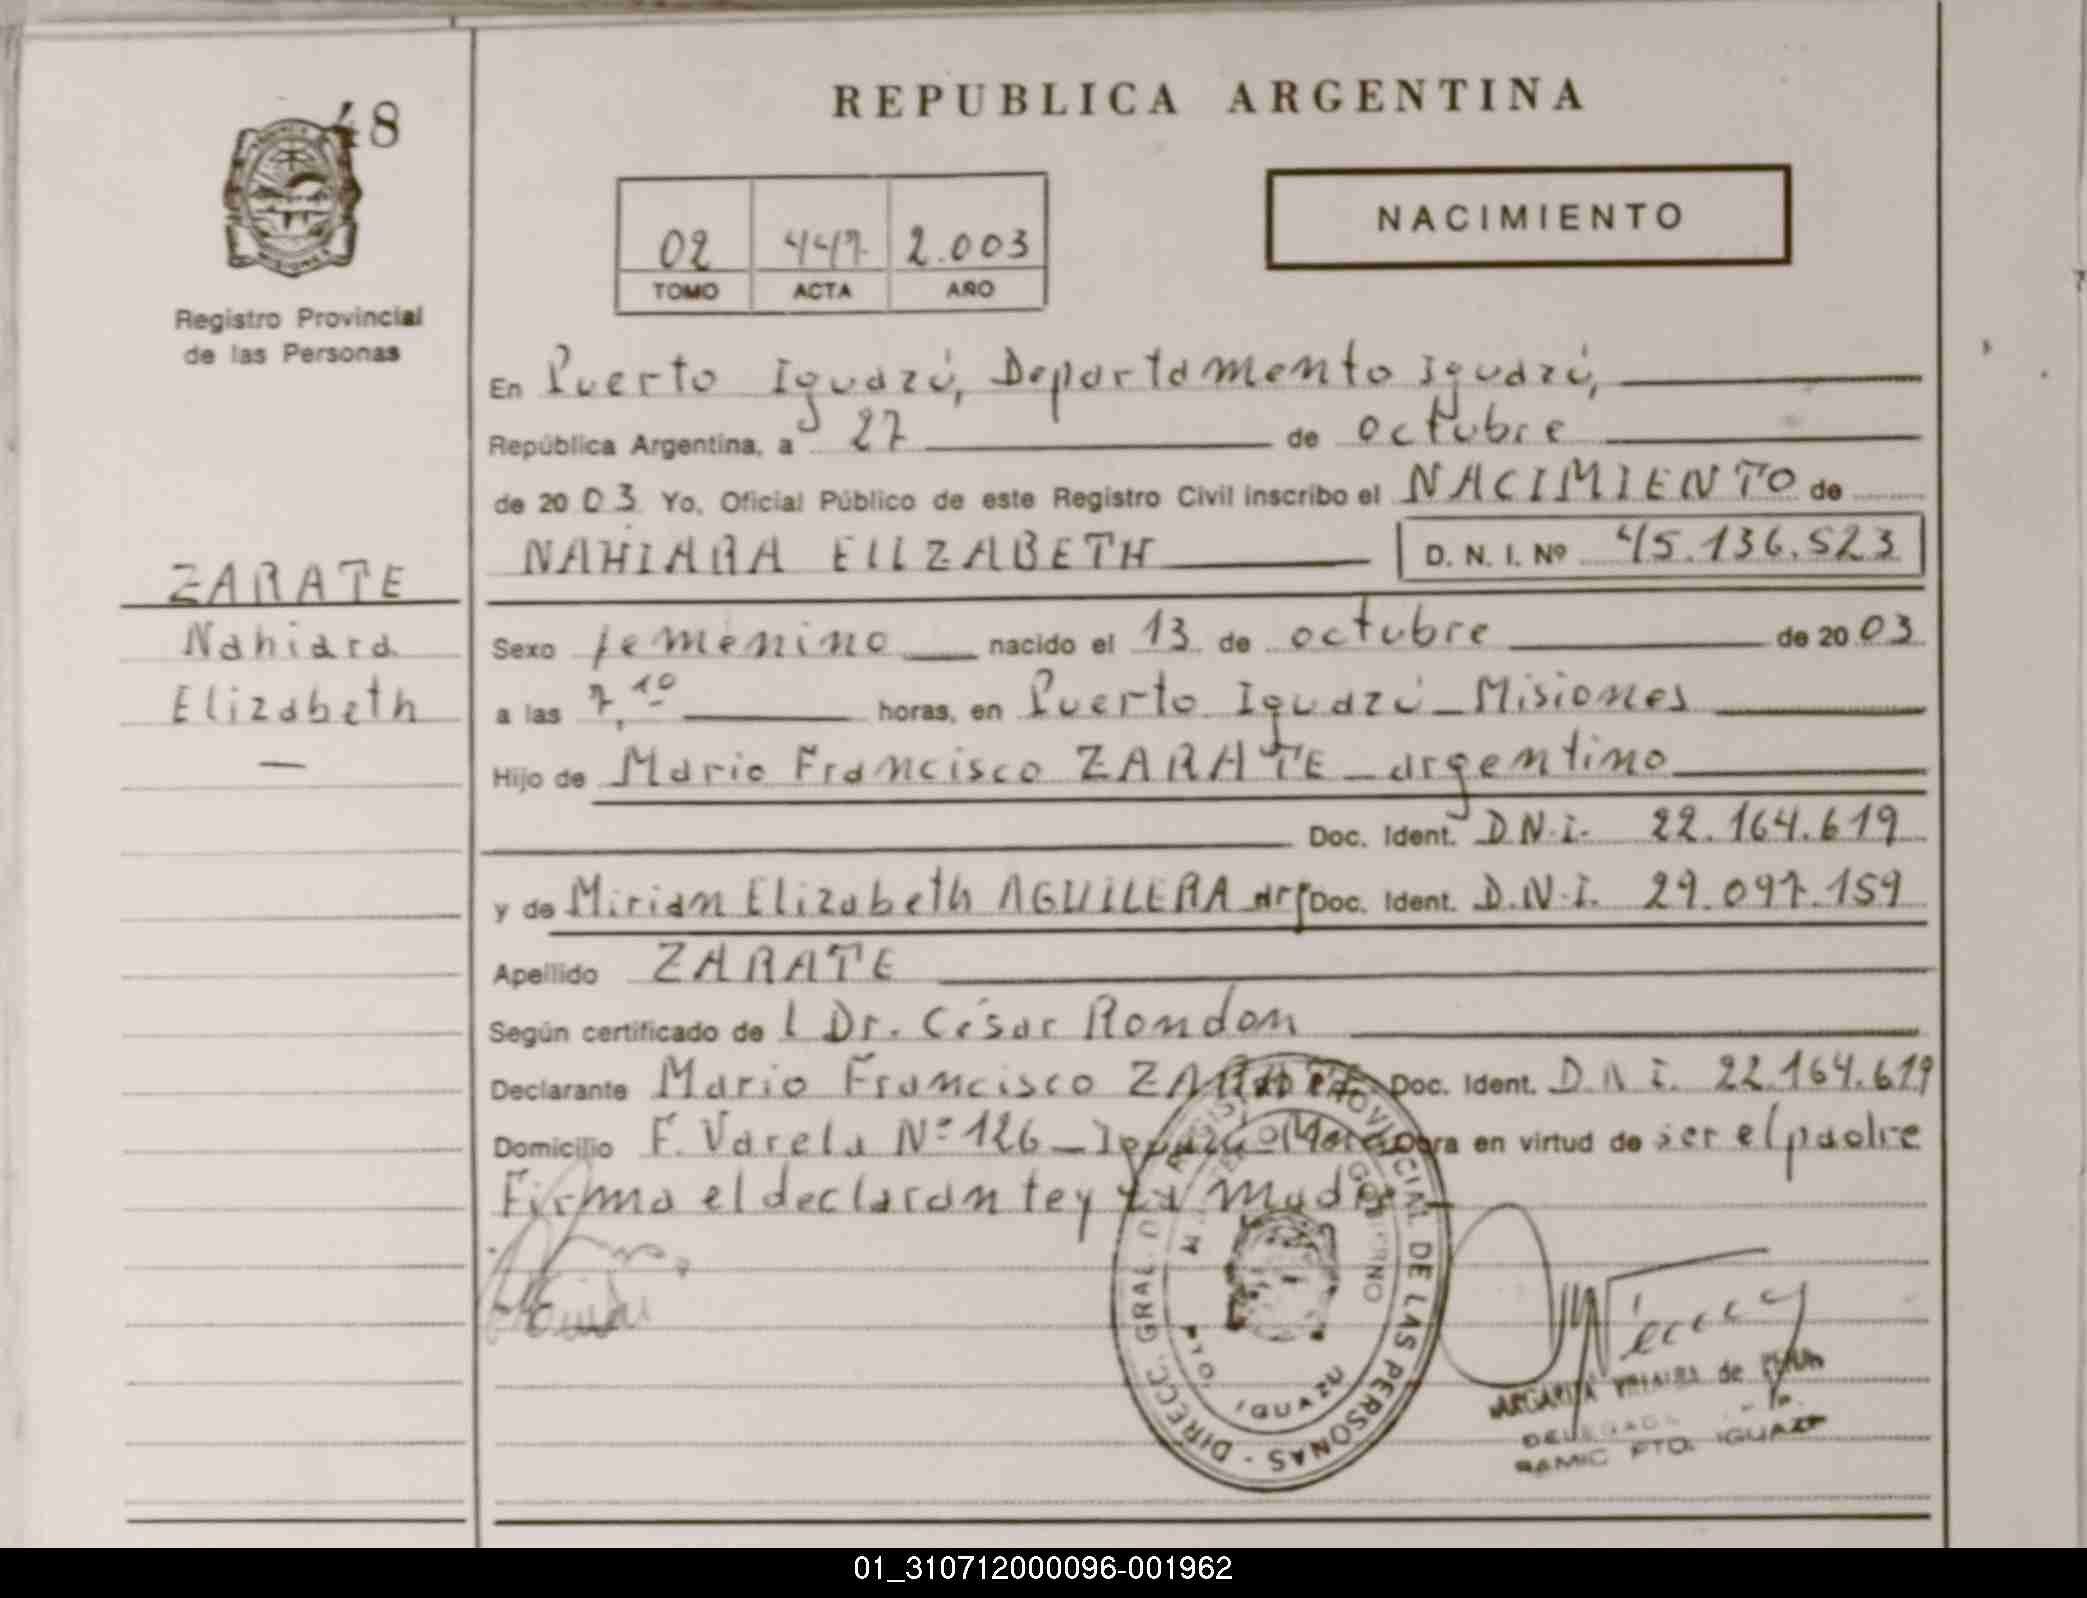 48
REPUBLICA ARGENTINA
NACIMIENTO
02 447 2.003
TOMO ACTA AÑO
Registro Provincial
de las Personas
En Puerto Iguazú, Departamento Iguazú,
República Argentina, a 27 de octubre
de 2003 Yo, Oficial Público de este Registro Civil inscribo el NACIMIENTO de
NAHIARA ELIZABETH D. N. I. Nº 45.136.523
ZARATE
Nahiara
Elizabeth
Sexo femenino nacido el 13 de octubre de 2003
a las 7,10 horas, en Puerto Iguazú - Misiones
Hijo de Mario Francisco ZARATE - argentino
Doc. Ident. D.N.I. 22.164.619
y de Mirian Elizabeth AGUILERA arg Doc. Ident. D.N.I. 29.097.159
Apellido ZARATE
Según certificado de l Dr. César Rondon
Declarante Mario Francisco ZARATE Doc. Ident. D.N.I. 22.164.619
Domicilio F. Varela Nº 126 - Iguazú Obra en virtud de ser el padre
Firma el declarante y la madre
DIRECC. GRAL. DE REGISTRO PROVINCIAL DE LAS PERSONAS
GOBIERNO
PTO. IGUAZU
MARGARITA VILLALBA de
DELEGADA
PTO. IGUAZU
01_310712000096-001962